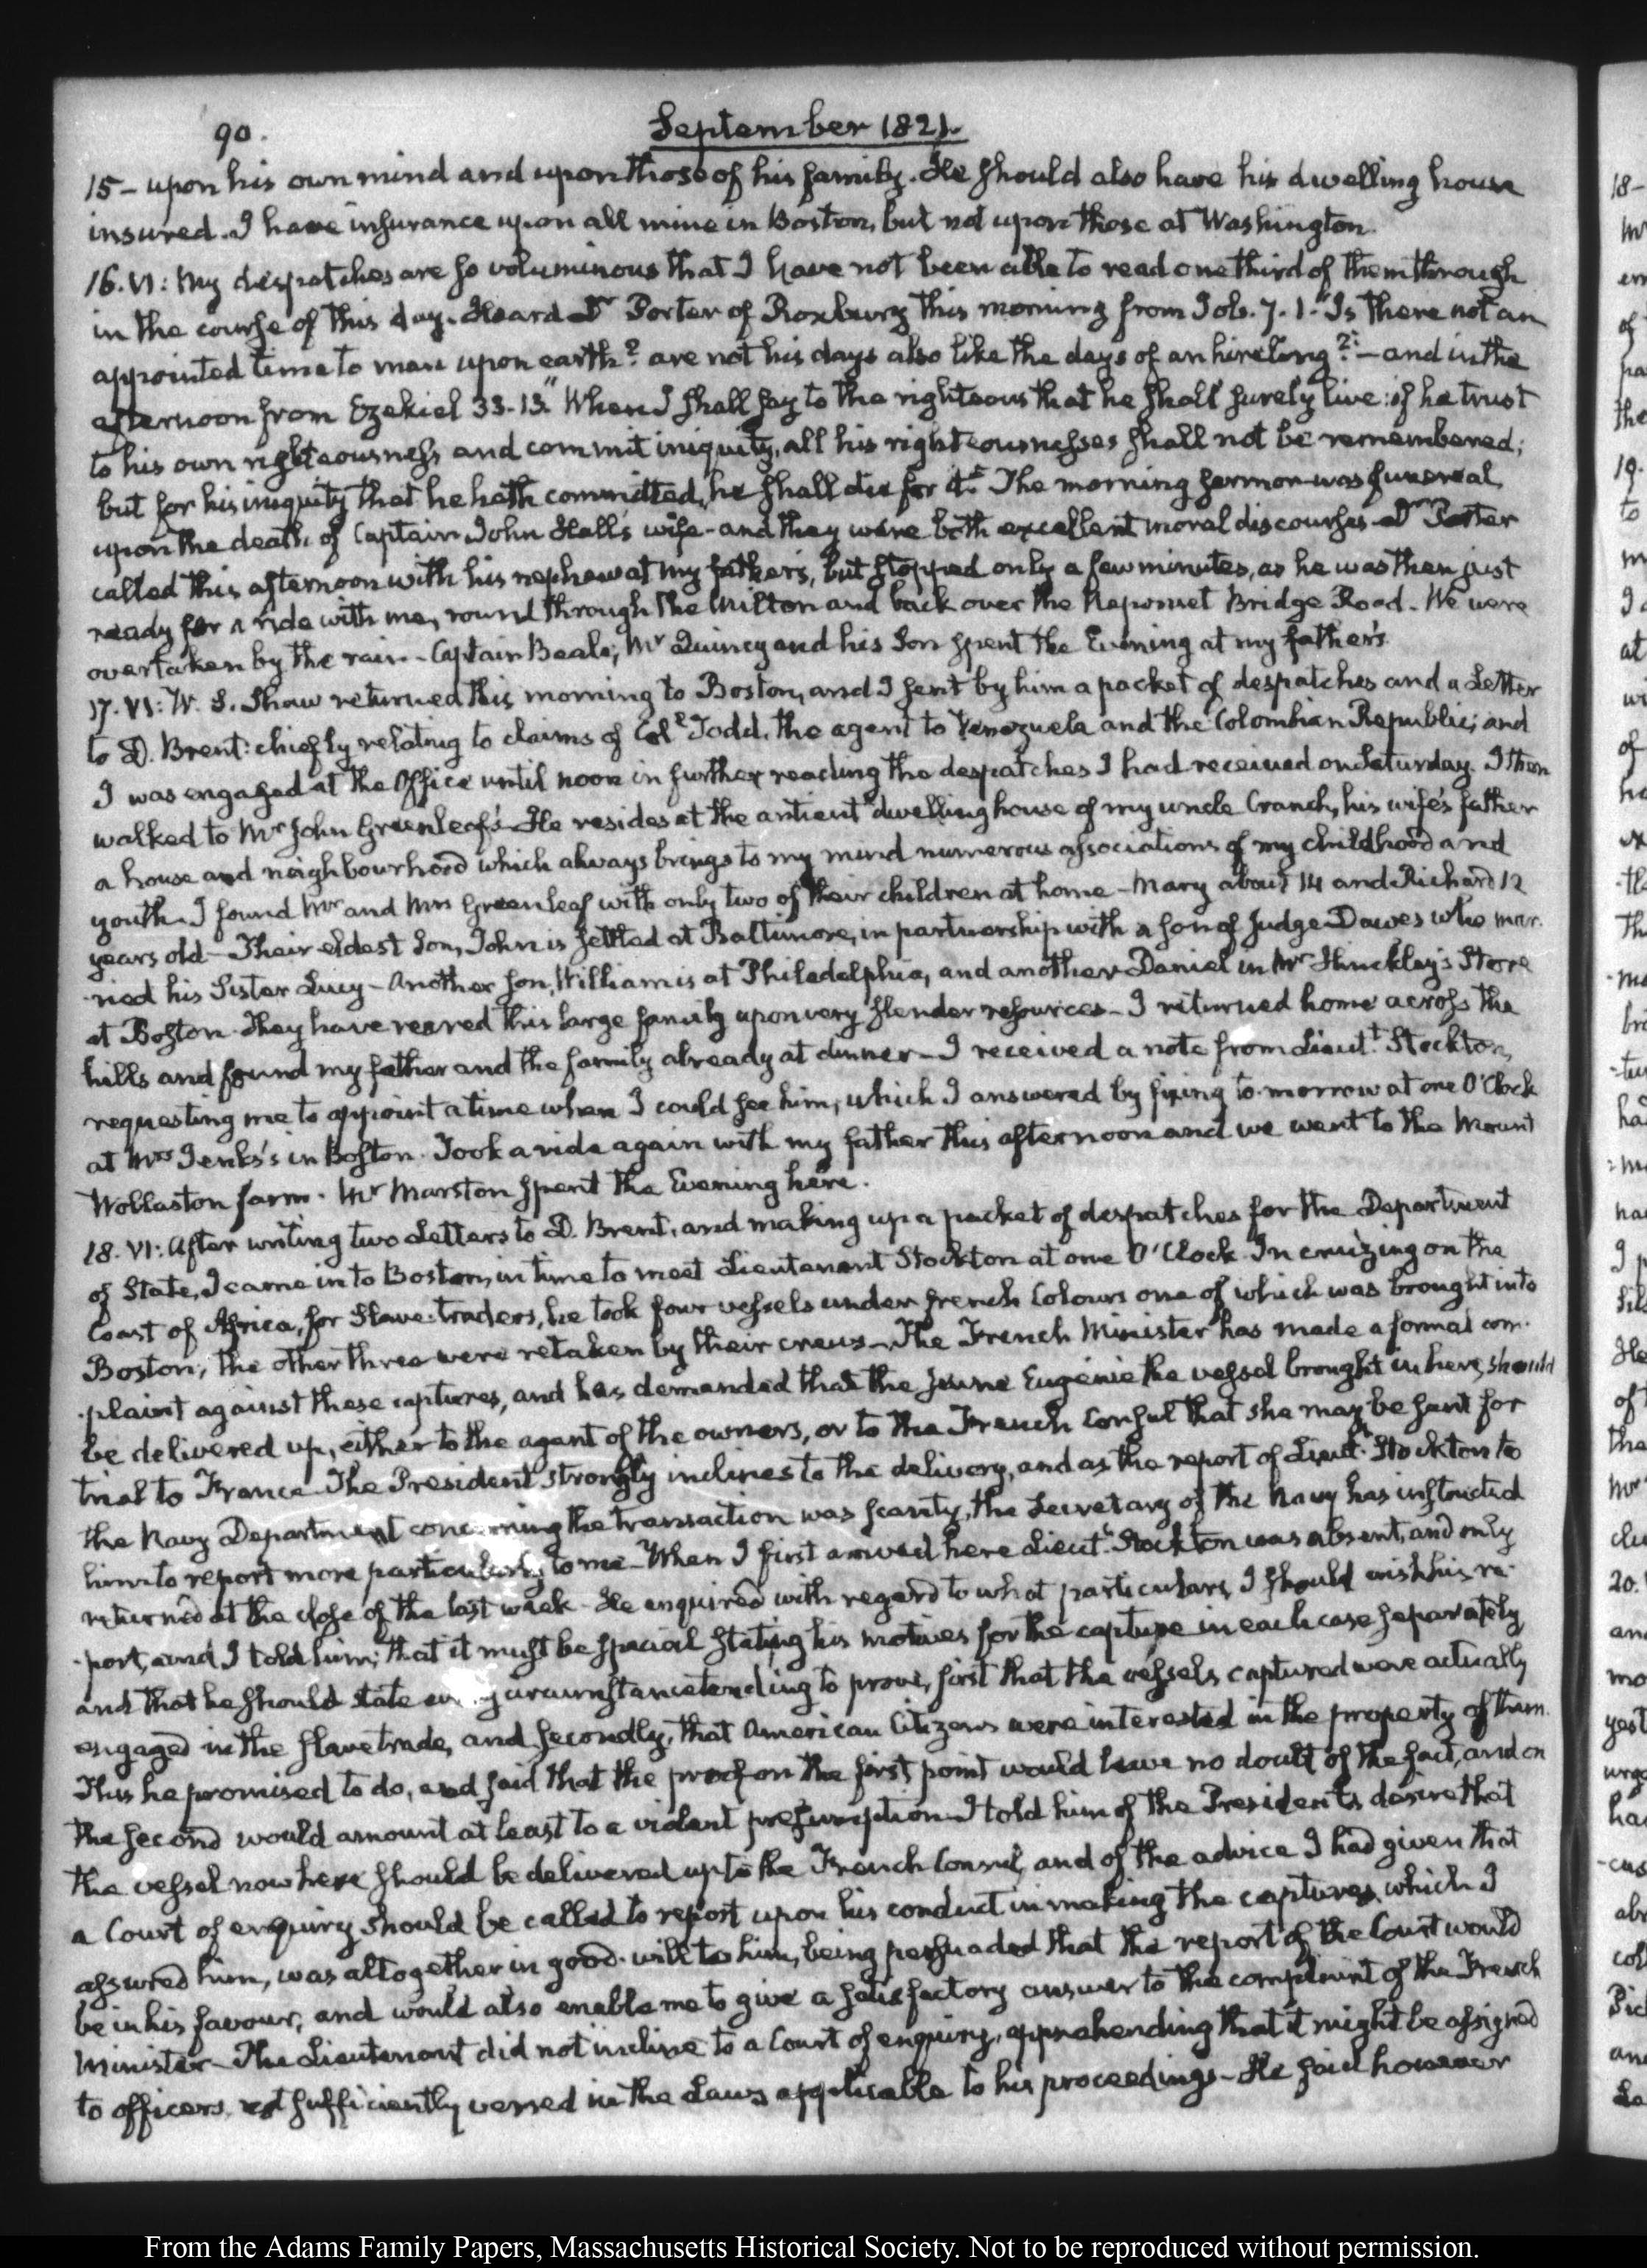 90.
September 1821.
15 - upon his own mind and upon those of his family. He should also have his dwelling house
insured. I have insurance upon all mine in Boston, but not upon those at Washington.
16. VI: My despatches are so voluminous that I have not been able to read one third of them through
in the course of this day. Heard Dr Porter of Roxbury this morning from Job. 7. 1. "Is there not an
appointed time to man upon earth? are not his days also like the days of an hireling?" - and in the
afternoon from Ezekiel 33-13. "When I shall say to the righteous that he shall surely live: if he trust
to his own righteousness and commit iniquity, all his righteousnesses shall not be remembered;
but for his iniquity that he hath committed, he shall die for it." The morning sermon was funereal,
upon the death of Captain John Hall's wife - and they were both excellent moral discourses - Dr Porter
called this afternoon with his nephew at my father's, but stopped only a few minutes, as he was then just
ready for a ride with me, round through the Milton and back over the Neponset Bridge Road. We were
overtaken by the rain - Captain Beale, Mr Quincy and his Son spent the Evening at my father's.
17. VI: W. S. Shaw returned this morning to Boston, and I sent by him a packet of despatches and a Letter
to D. Brent: chiefly relating to claims of Coll Todd, the agent to Venezuela and the Colombian Republic; and
I was engaged at the Office until noon in further reading the despatches I had received on Saturday. I then
walked to Mr John Greenleaf's - He resides at the antient dwelling house of my uncle Cranch, his wife's father
a house and neighbourhood which always brings to my mind numerous associations of my childhood and
youth. I found Mr and Mrs Greenleaf with only two of their children at home - Mary about 14 and Richard 12
years old - Their eldest Son, John is settled at Baltimore, in partnership with a son of Judge Dawes who mar-
-ried his Sister Lucy - Another son, William is at Philadelphia, and another Daniel in Mr Hinckley's Store
at Boston. They have reared this large family upon very slender resources - I returned home across the
hills and found my father and the family already at dinner - I received a note from Lieutt Stockton,
requesting me to appoint a time when I could see him, which I answered by fixing to-morrow at one O'Clock
at Mrs Jenks's in Boston. Took a ride again with my father this afternoon and we went to the Mount
Wollaston farm. Mr Marston spent the Evening here.
18. VI: After writing two Letters to D. Brent, and making up a packet of despatches for the Department
of State, I came in to Boston, in time to meet Lieutenant Stockton at one O'Clock. In cruizing on the
Coast of Africa, for Slave-traders, he took four vessels under French Colours one of which was brought into
Boston; the other three were retaken by their crews - The French Minister has made a formal com-
-plaint against these captures, and has demanded that the Jeune Eugenie the vessel brought in here, should
be delivered up, either to the agent of the owners, or to the French Consul that she may be sent for
trial to France - The President strongly inclines to the delivery, and as the report of Lieutt Stockton to
the Navy Department concerning the transaction was scanty, the Secretary of the Navy has instructed
him to report more particularly to me - When I first arrived here Lieutt Stockton was absent, and only
returned at the close of the last week - He enquired with regard to what particulars I should wish his re-
-port, and I told him, that it must be special stating his motives for the capture in each case separately,
and that he should state every circumstance tending to prove, first that the vessels captured were actually
engaged in the slave trade, and secondly, that American Citizens were interested in the property of them.
This he promised to do, and said that the proof on the first point would leave no doubt of the fact, and on
the second would amount at least to a violent presumption - I told him of the President's desire that
the vessel now here should be delivered up to the French Consul, and of the advice I had given that
a Court of enquiry should be called to report upon his conduct in making the captures, which I
assured him, was altogether in good-will to him, being persuaded that the report of the Court would
be in his favour, and would also enable me to give a satisfactory answer to the complaint of the French
Minister - The Lieutenant did not incline to a Court of enquiry, apprehending that it might be assigned
to officers, not sufficiently versed in the Laws applicable to his proceedings - He said however
From the Adams Family Papers, Massachusetts Historical Society. Not to be reproduced without permission.